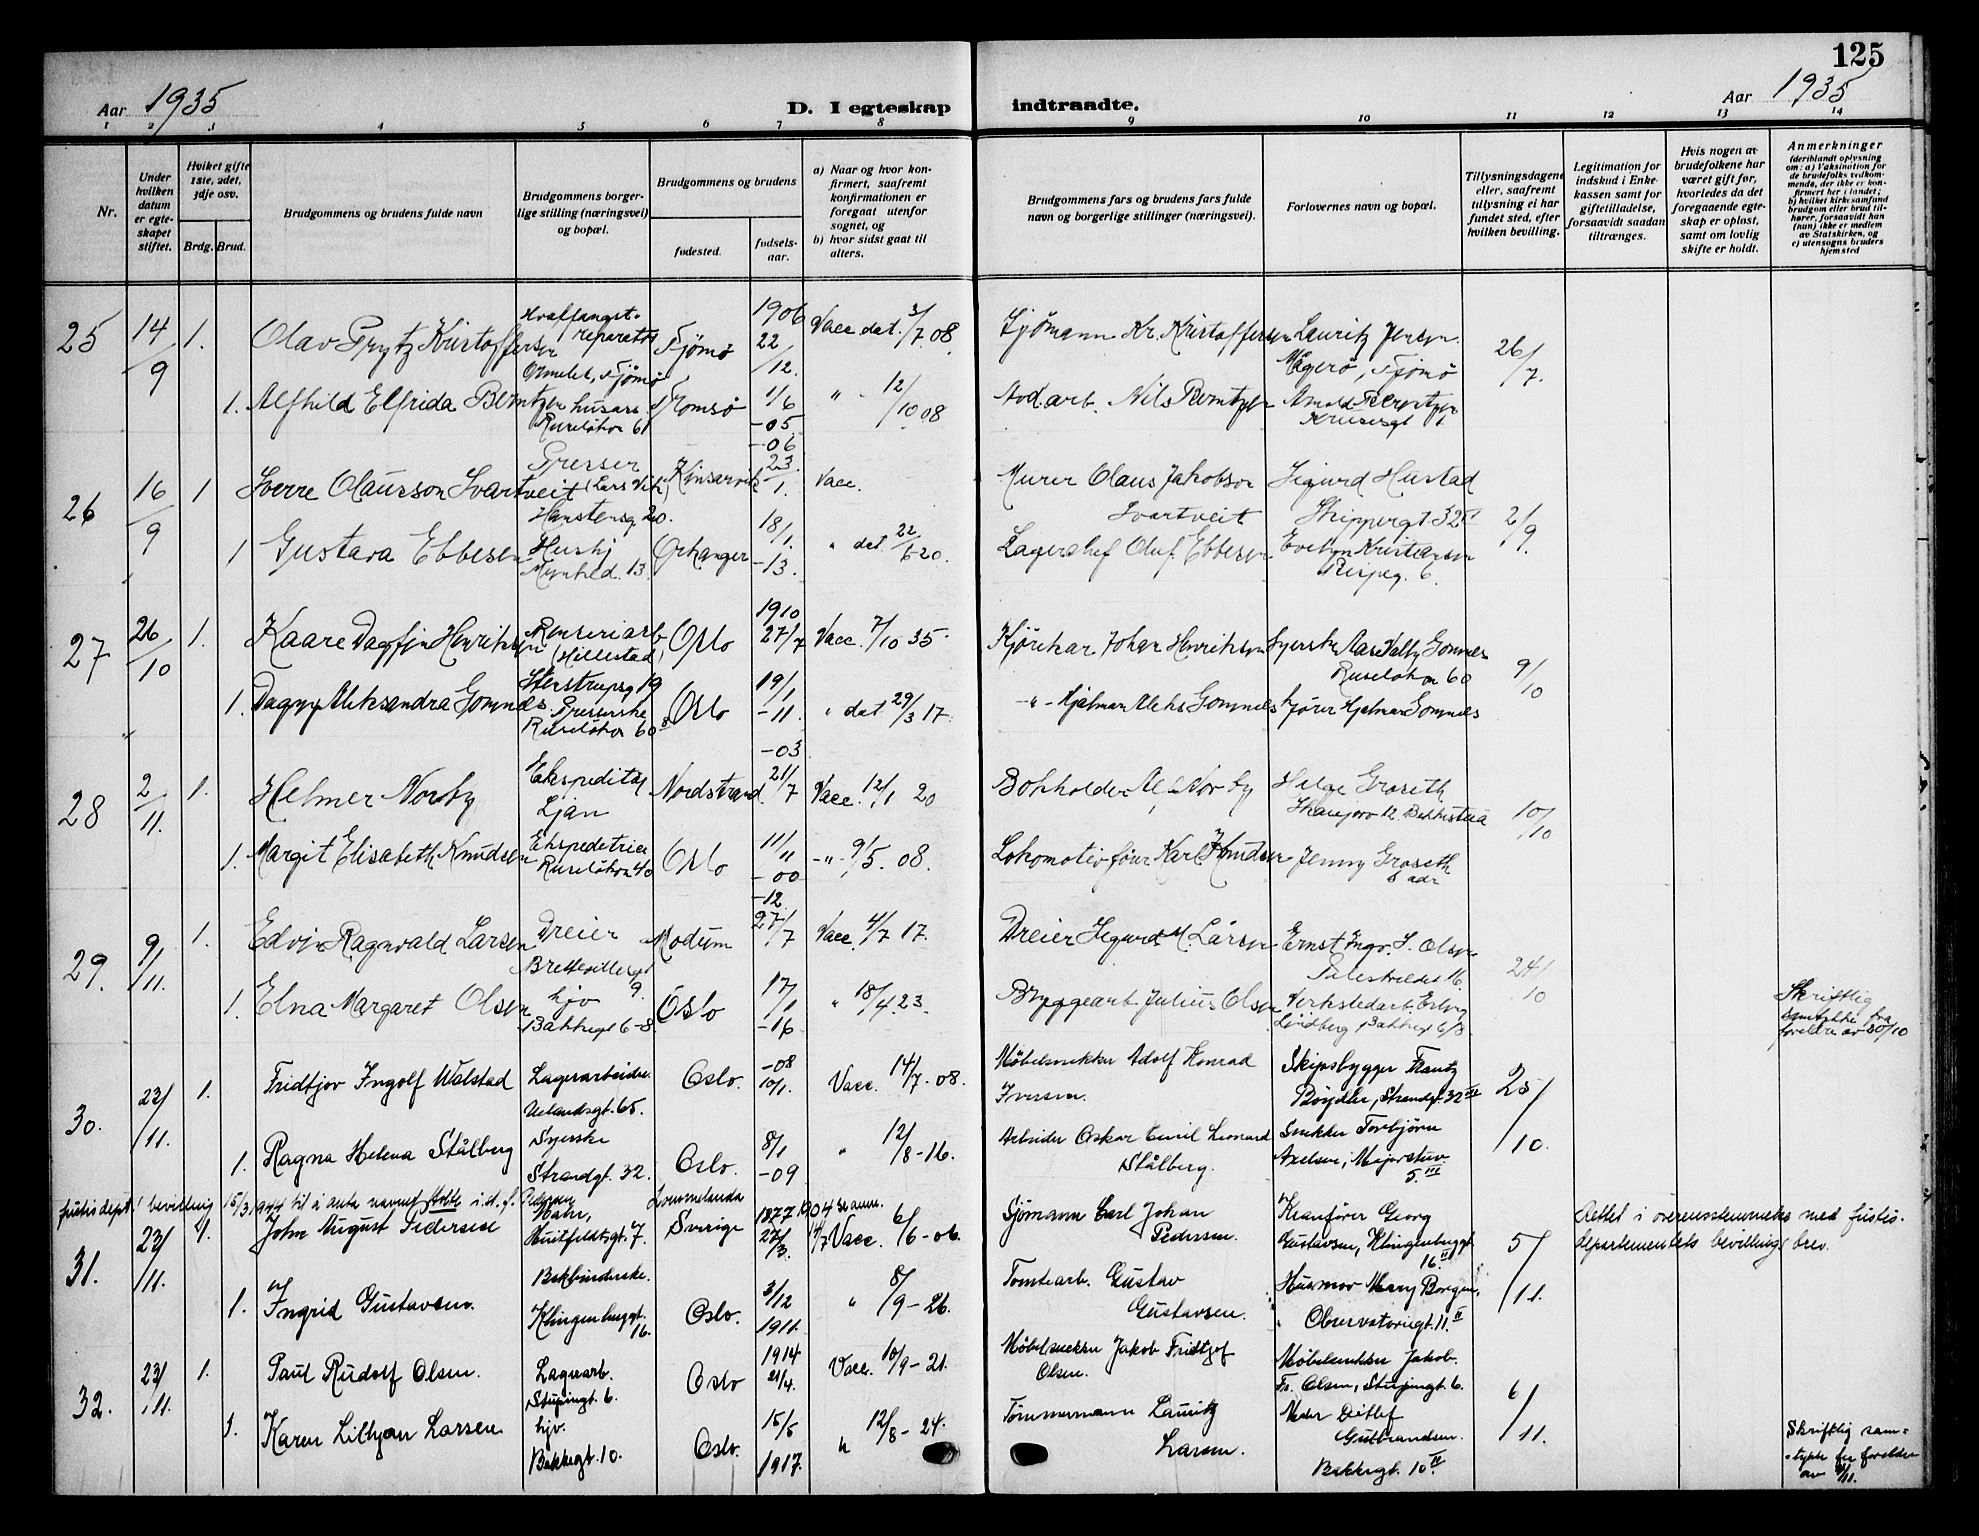 125
Aar 1935
D. I egteskap indtraadte.
Aar 1935
1 2 3 4 5 6 7 8 9 10 11 12 13 14
Nr.
Under hvilken datum er egteskapet stiftet.
Hvilket gifte 1ste, 2det, 3dje osv.
Brdg. Brud.
Brudgommens og brudens fulde navn
Brudgommens borgerlige stilling (næringsvei) og bopæl.
Brudgommens og brudens
fødested.
fødselsaar.
a) Naar og hvor konfirmert, saafremt konfirmationen er foregaat utenfor sognet, og
b) hvor sidst gaat til alters.
Brudgommens fars og brudens fars fulde navn og borgerlige stillinger (næringsvei).
Forlovernes navn og bopæl.
Tillysningsdagene eller, saafremt tillysning ei har fundet sted, efter hvilken bevilling.
Legitimation for indskud i Enkekassen samt for giftetilladelse, forsaavidt saadan tiltrænges.
Hvis nogen av brudefolkene har været gift før, hvorledes da det foregaaende egteskap er opløst, samt om lovlig skifte er holdt.
Anmerkninger
(deriblandt oplysning om: a) Vaksination for de brudefolks vedkommende, der ikke er konfirmert her i landet; b) hvilket kirkesamfund brudgom eller brud tilhører, forsaavidt han (hun) ikke er medlem av Statskirken, og c) utensogns bruders hjemsted
25 14/9 1. Olav Prytz Kristoffersen Hvalfangst-reparatør Ormelet, Tjømø Tjømø 1906 22/12. Vacc. dat. 3/7 08. Sjømann Kr. Kristoffersen Lauritz Jensen. Magerø, Tjømø 26/7.
1. Alfhild Elfrida Berntzen husass. Ruseløkvn 61 Tromsø 1/6 -05 " - 12/10 08 Nils Berntzen
26 16/9 1 Sverre Olausson Svartveit Presser Kinsarvik -06 23/1. Vacc. Murer Olaus Jakobson Svartveit Sigurd Hustad Skippergt. 32 2/9.
1 Gustava Ebbesen Husbj Munked. 13 Orkanger 18/1. -13. " dat. 22/6 20. Lagerchef Oluf Ebbesen Evelyn Kristiansen
27 26/10 1. Kaare Dagfin Henriksen Renseriarb (Hillestad) Oslo 1910 27/7 Vacc. 7/10 35. Kjørekar Johan Henriksen Syerske Aase Valb. Gomnes Ruseløkvn 60 9/10
1. Dagny Aleksandra Gomnes. Presserske Ruseløkvn 60 Oslo 19/1 -11. " dat 29/3 17. -"- Hjalmar Aleks Gomnæs kjører Hjalmar Gomnæs
28 2/11. 1. Helmer Norby Ekspeditør Ljan Nordstrand -03 21/7 Vacc. 12/1 20 Bokholder Alf Norby Helge Graseth 10/10
1. Margit Elisabeth Knudsen Ekspeditrice Ruseløkvn 40 Oslo 11/11 -00 -"- 9/5. 08. Lokomotivfører Karl Knudsen Jenny Graseth S adr
29. 9/11. 1. Edvin Ragnvald Larsen Dreier Modum -12. 27/7 Vacc. 4/7 17. Dreier Sigurd M Larsen Ernst Ingv. J. Olsen 24/10
1. Elna Margaret Olsen hjv Bakkegt 6-8 Oslo 17/1 -16 " 18/4 23. Bryggearb. Julius Olsen Verkstedarb. Erling Lindberg Bakkegt 6/8 Skriftlig samtykke fra foreldre av 20/10
30. 23/11. 1. Fridtjov Ingolf Walstad Lagerarbeider. Uelandsgt. 65. Oslo. -08 10/1. Vacc. 14/7-08. Møbelsnekker Adolf Konrad Iversen. Skipsbygger Frantz Strandgt. 32 III 25/10.
1. Ragna Helena Stålberg Syerske Strandgt. 32. Oslo. 8/1 -09 " 12/8-16. Arbeider Oskar Emil Leonard Stålberg. Snekker Torbjørn Axelsen, Majorstuv 5. III
justisdept.s bevilling 15/3 1944 til å anta navnet Holte i.st.f. Pedersen
31. 23/11. 1. John August Pedersen Huitfeldtsgt. 7. Lommelanda Sverige 1877 27/3. 1904 se anm. 14/7 Vacc. 6/6-06. Sjømann Carl Johan Pedersen. Kranfører Georg Gustavsen, Klingenberggt 16. II 5/11. Rettet i overensstemmelse med justis-departementets bevillings brev.
1. Ingrid Gustavsen. Bokbinderske. Klingenberggt. 16. Oslo. 3/12 1911. " 8/9-26. Tomtearb. Gustav Gustavsen. Husmor Mary Borgen, Observatoriegt. 11. II
32. 23/11. 1. Paul Rudolf Olsen. Lagerarb. Oslo 1914 21/4. Vacc. 10/9-21. Møbelsnekker Jakob Fridtjof Olsen. Møbelsnekker Jakob. Fr. Olsen, 6/11.
1. Karen Lillyan Larsen hjv. Bakkegt. 10. Oslo. 15/5 1917. " 12/8-24. Tømmermann Lauritz Larsen. Maler Ditlef Gulbrandsen. Bakkegt. 10 IV. Skriftlig samtykke fra foreldre av